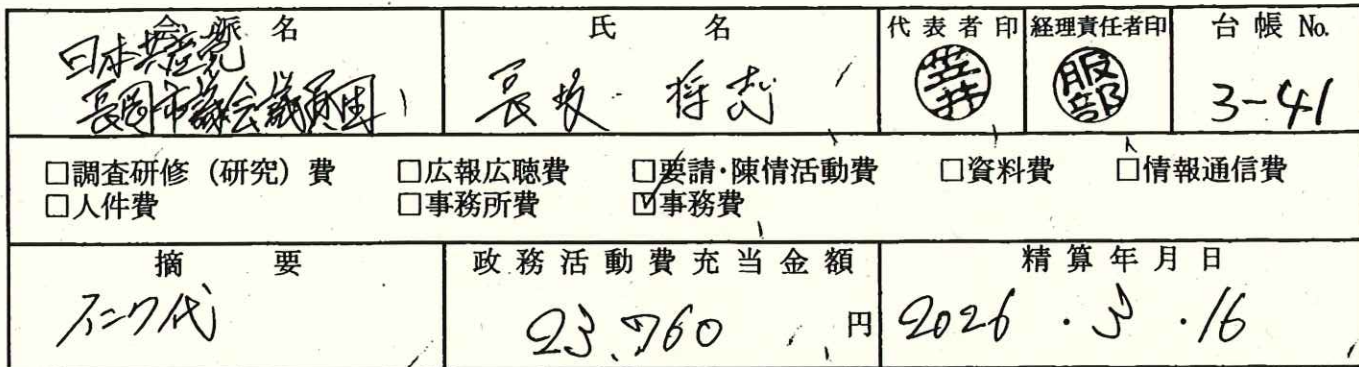 会派名 氏名 代表者印 経理責任者印 台帳 No.
日本共産党
長岡市議会議員団 笠井 服部 3-41
□調査研修(研究)費 □広報広聴費 □要請・陳情活動費 □資料費 □情報通信費
□人件費 □事務所費 ☑事務費
摘要 政務活動費充当金額 精算年月日
23,760 円 2026.3.16